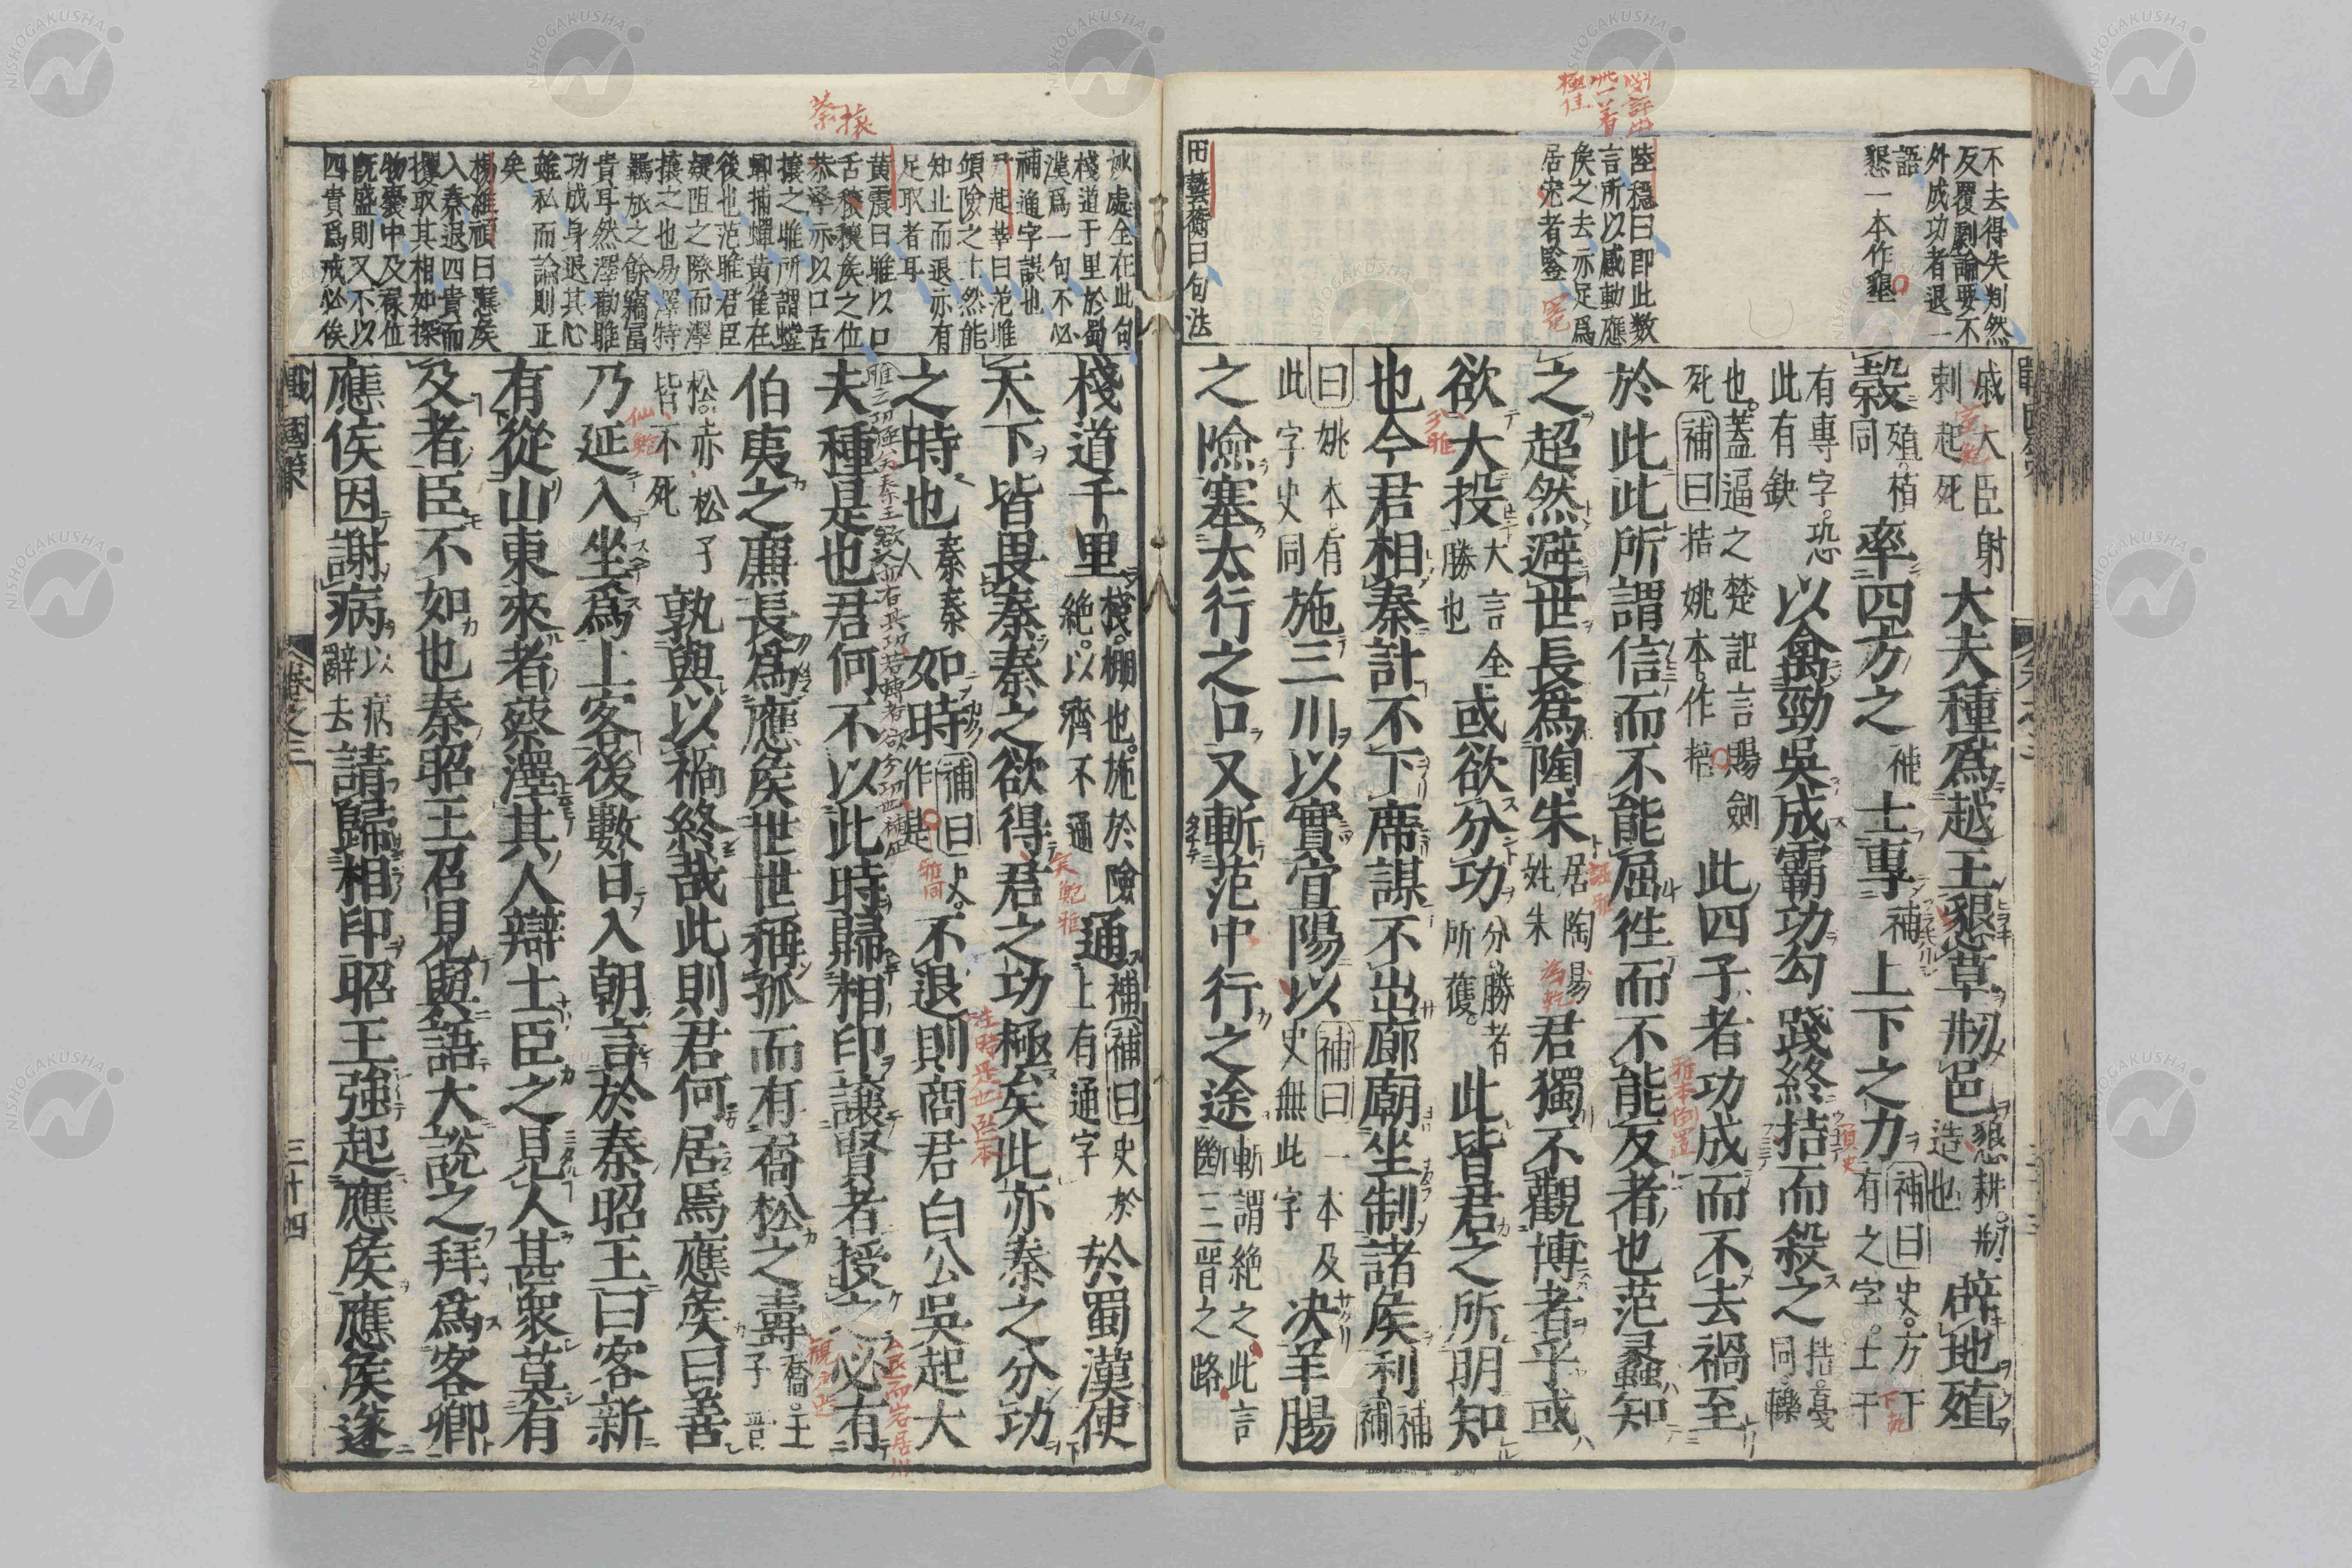 不去得失判然
反覆劇論要不
外成功者退一
語
懇一本作墾
陸穏曰即此数
言所以感動應
矦之去亦足爲
居寵者鑒
田藝衡曰句法
戚大臣射
刺起死
大夫種爲越王懇草剏邑
懇耕剏
造也
辟地殖
穀
殖植
同
率四方之
補
士專
補
上下之力
補曰史方下
有之字士下
有專字恐
此有缺
以禽勁吳成霸功勾踐終掊而殺之
掊㪣
同轢
也蓋逼之楚訛言賜劍
死補曰掊姚本作棓
此四子者功成而不去禍至
於此此所謂信而不能屈徃而不能反者也范蠡知
之超然避世長爲陶朱
居陶易
姓朱
君獨不觀博者乎或
欲大投
大言全
勝也
或欲分功
分勝者
所獲
此皆君之所明知
也今君相秦計不下席謀不出廊廟坐制諸矦利
補
補
曰姚本有
此字史同
施三川以實宜陽以
補曰一本及
史無此字
决羊腸
之險塞太行之口又斬范中行之途
斬謂絶之此言
斷三晋之路
妙處全在此句
棧道千里於蜀
漢爲一句不必
補通字誤也
尹起莘曰范雎
傾險之士然能
知止而退亦有
足取者耳
黄震曰雎以口
舌穣穰矦之位
蔡澤亦以口舌
攘之雎所謂螳
螂捕蟬黄雀在
後也范雎君臣
疑阻之際而澤
攘之也易澤特
羈旅之餘竊冨
貴耳然澤勸雎
功成身退其心
雖私而論則正
矣
楊維禎曰應矦
入秦退四貴而
攫取其相如探
物囊中及禄位
旣盛則又不以
四貴爲戒必俟
棧道千里
棧棚也施於險
絶以濟不通
通
補補曰史於
上有通字
於蜀漢使
天下皆畏秦秦之欲得君之功極矣此亦秦之分功
之時也
秦秦
如時
補曰史
作是
不退則商君白公吳起大
夫種是也君何不以此時歸相印讓賢者授之必有
伯夷之廉長爲應矦世世稱孤而有喬松之壽
喬王
子晋
松赤松子
皆不死
孰與以禍終哉此則君何居焉應矦曰善
乃延入坐爲上客後數日入朝言於秦昭王曰客新
有從山東來者蔡澤其人辯士臣之見人甚衆莫有
及者臣不如也秦昭王召見與語大說之拜爲客卿
應侯因謝病
以病
辭去
請歸相印昭王強起應矦應矦遂
戰國策
卷之三
三十四